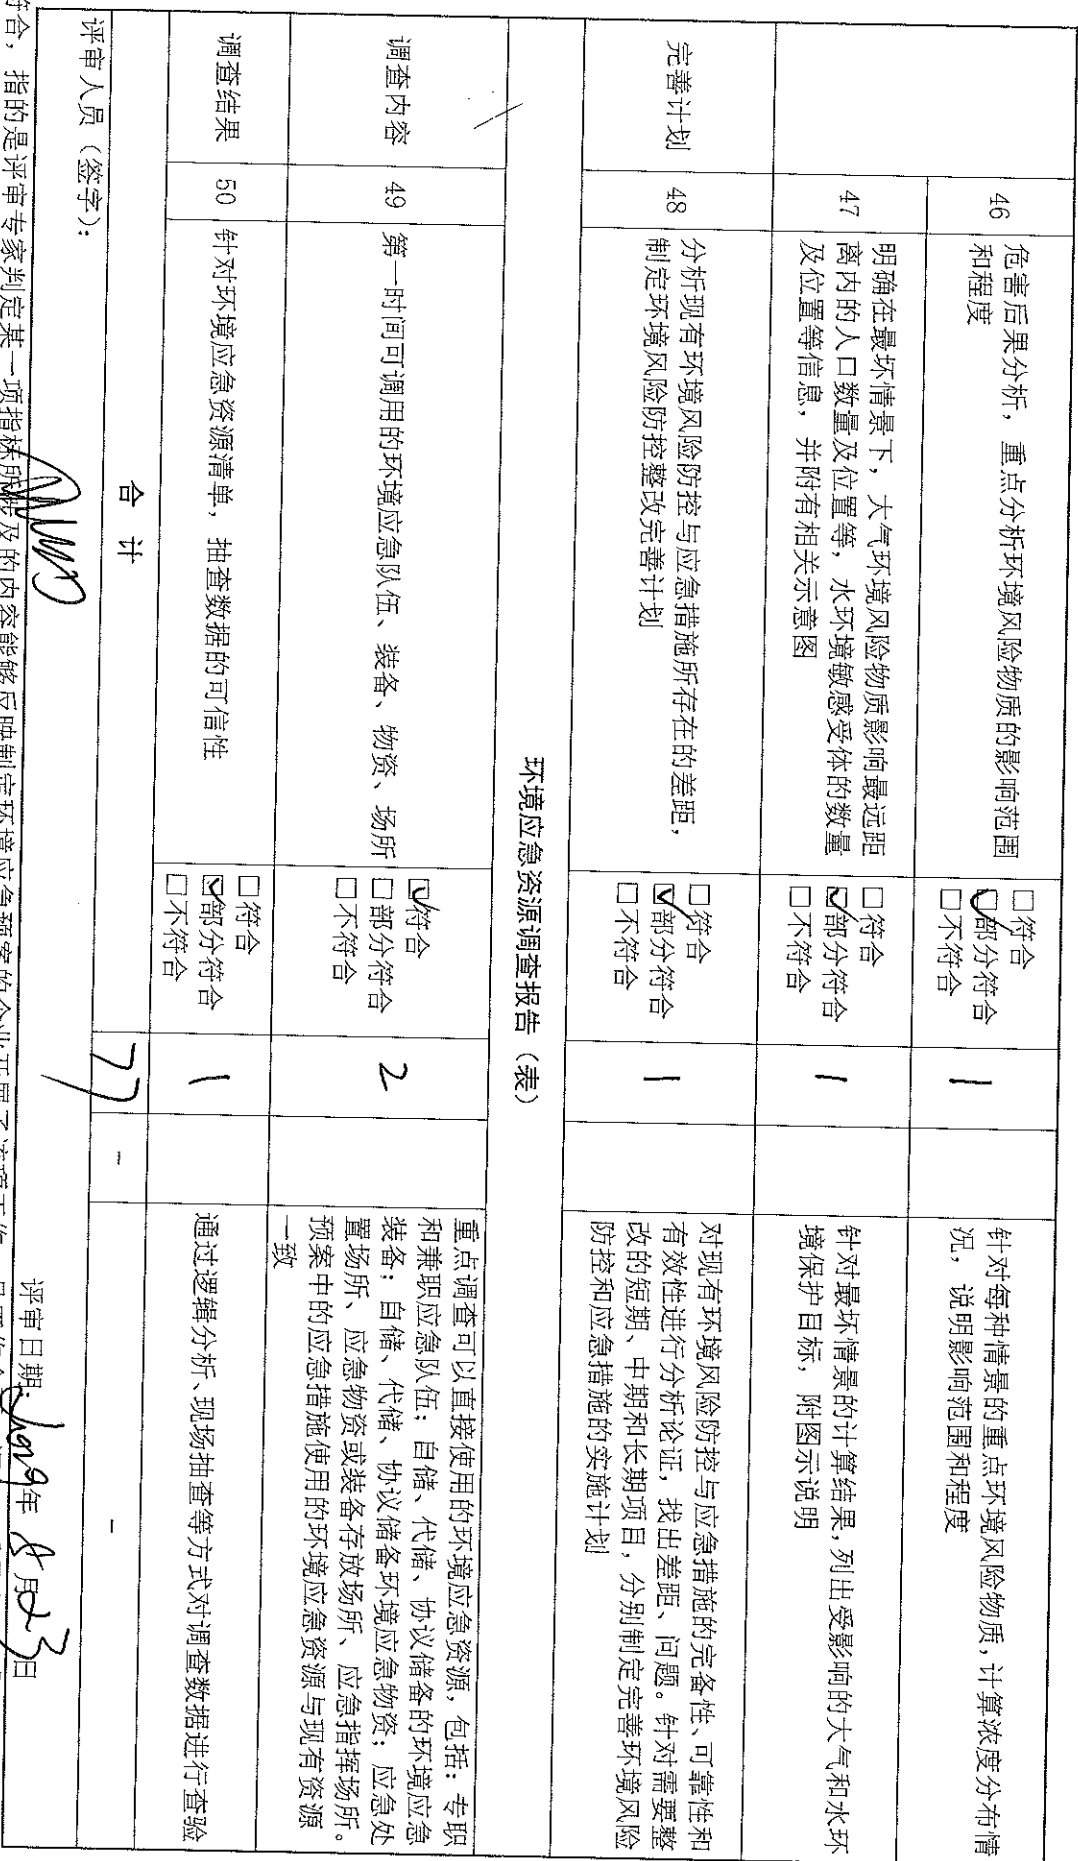 46
危害后果分析，重点分析环境风险物质的影响范围
和程度
□符合
☑部分符合
□不符合
1
针对每种情景的重点环境风险物质，计算浓度分布情
况，说明影响范围和程度
47
明确在最坏情景下，大气环境风险物质影响最远距
离内的人口数量及位置等，水环境敏感受体的数量
及位置等信息，并附有相关示意图
□符合
☑部分符合
□不符合
1
针对最坏情景的计算结果，列出受影响的大气和水环
境保护目标，附图示说明
完善计划
48
分析现有环境风险防控与应急措施所存在的差距，
制定环境风险防控整改完善计划
□符合
☑部分符合
□不符合
1
对现有环境风险防控与应急措施的完备性、可靠性和
有效性进行分析论证，找出差距、问题。针对需要整
改的短期、中期和长期项目，分别制定完善环境风险
防控和应急措施的实施计划
环境应急资源调查报告（表）
调查内容
49
第一时间可调用的环境应急队伍、装备、物资、场所
☑符合
□部分符合
□不符合
2
重点调查可以直接使用的环境应急资源，包括：专职
和兼职应急队伍；自储、代储、协议储备的环境应急
装备；自储、代储、协议储备环境应急物资；应急处
置场所、应急物资或装备存放场所、应急指挥场所。
预案中的应急措施使用的环境应急资源与现有资源
一致
调查结果
50
针对环境应急资源清单，抽查数据的可信性
□符合
☑部分符合
□不符合
1
通过逻辑分析、现场抽查等方式对调查数据进行查验
合 计
77
-
-
评审人员（签字）：
评审日期：2019年8月23日
符合，指的是评审专家判定某一项指标所涉及的内容能够反映制定环境应急预案的企业开展了该项工作